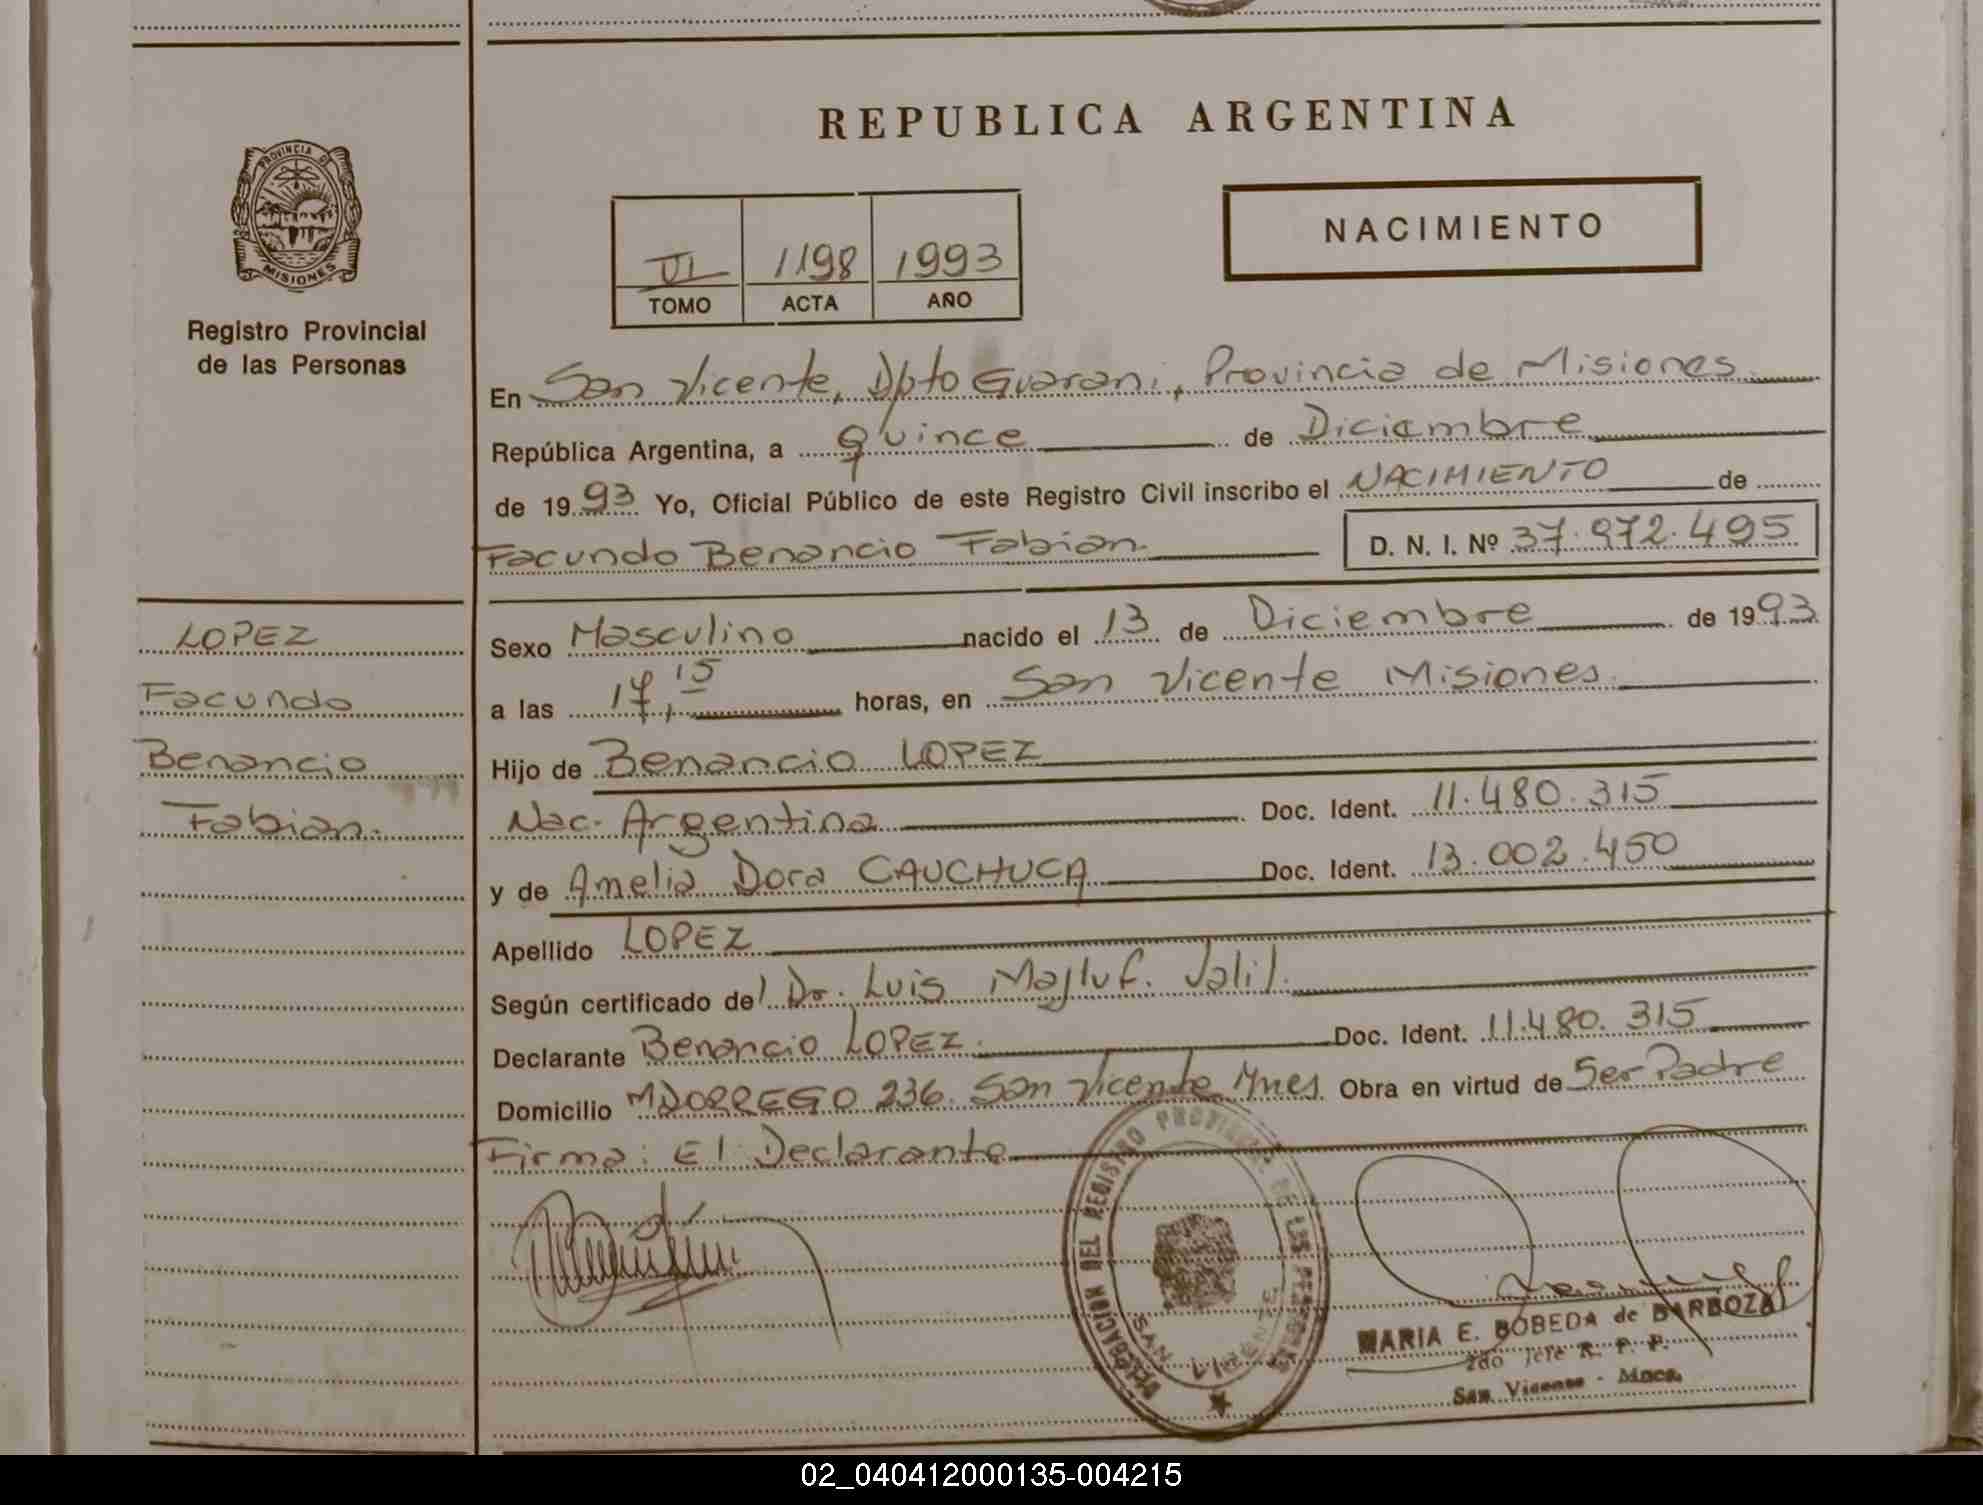 REPUBLICA ARGENTINA
PROVINCIA DE
MISIONES
Registro Provincial
de las Personas
VI 1198 1993
TOMO ACTA AÑO
NACIMIENTO
En San Vicente, Dpto Guarani, Provincia de Misiones
República Argentina, a Quince de Diciembre
de 1993 Yo, Oficial Público de este Registro Civil inscribo el NACIMIENTO de
Facundo Benancio Fabian. D. N. I. Nº 37.972.495
LOPEZ
Facundo
Benancio
Fabian.
Sexo Masculino nacido el 13 de Diciembre de 1993
a las 17,15 horas, en San Vicente Misiones.
Hijo de Benancio LOPEZ
Nac. Argentina Doc. Ident. 11.480.315
y de Amelia Dora CAUCHUCA Doc. Ident. 13.002.450
Apellido LOPEZ
Según certificado del Dr. Luis Majluf. Jalil.
Declarante Benancio LOPEZ. Doc. Ident. 11.480.315
Domicilio MDORREGO 236. San Vicente Mnes. Obra en virtud de Ser Padre
Firma: El Declarante
DELEGACION DEL REGISTRO PROVINCIAL DE LAS PERSONAS
SAN VICENTE
MARIA E. BOBEDA de BARBOZA
2do Jefe R. P. P.
San Vicente - Mnes.
02_040412000135-004215